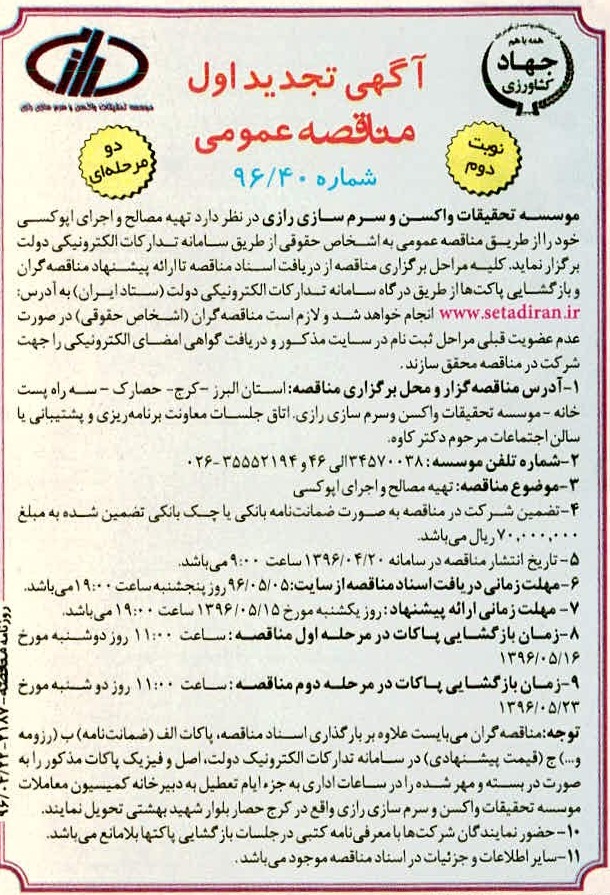 همه با هم
جهاد
کشاورزی
موسسه تحقیقات واکسن و سرم سازی رازی
آگهی تجدید اول
مناقصه عمومی
شماره ۹۶/۴۰
نوبت
دوم
دو
مرحله‌ای
موسسه تحقیقات واکسن و سرم سازی رازی در نظر دارد تهیه مصالح و اجرای اپوکسی
خود را از طریق مناقصه عمومی به اشخاص حقوقی از طریق سامانه تدارکات الکترونیکی دولت
برگزار نماید. کلیه مراحل برگزاری مناقصه از دریافت اسناد مناقصه تا ارائه پیشنهاد مناقصه گران
و بازگشایی پاکت‌ها از طریق درگاه سامانه تدارکات الکترونیکی دولت (ستاد ایران) به آدرس:
www.setadiran.ir انجام خواهد شد و لازم است مناقصه گران (اشخاص حقوقی) در صورت
عدم عضویت قبلی مراحل ثبت نام در سایت مذکور و دریافت گواهی امضای الکترونیکی را جهت
شرکت در مناقصه محقق سازند.
۱-آدرس مناقصه گزار و محل برگزاری مناقصه: استان البرز -کرج- حصارک - سه راه پست
خانه - موسسه تحقیقات واکسن وسرم سازی رازی. اتاق جلسات معاونت برنامه‌ریزی و پشتیبانی یا
سالن اجتماعات مرحوم دکتر کاوه.
۲-شماره تلفن موسسه: ۳۴۵۷۰۰۳۸الی ۴۶ و ۳۵۵۵۲۱۹۴-۰۲۶
۳-موضوع مناقصه: تهیه مصالح و اجرای اپوکسی
۴-تضمین شرکت در مناقصه به صورت ضمانت‌نامه بانکی یا چک بانکی تضمین شده به مبلغ
۷۰,۰۰۰,۰۰۰ ریال می‌باشد.
۵- تاریخ انتشار مناقصه در سامانه ۱۳۹۶/۰۴/۲۰ ساعت ۹:۰۰ می‌باشد.
۶-مهلت زمانی دریافت اسناد مناقصه از سایت: ۹۶/۰۵/۰۵ روز پنجشنبه ساعت ۱۹:۰۰ می‌باشد.
۷- مهلت زمانی ارائه پیشنهاد: روز یکشنبه مورخ ۱۳۹۶/۰۵/۱۵ ساعت ۱۹:۰۰ می‌باشد.
۸-زمان بازگشایی پاکات در مرحله اول مناقصه: ساعت ۱۱:۰۰ روز دوشنبه مورخ
۱۳۹۶/۰۵/۱۶
۹-زمان بازگشایی پاکات در مرحله دوم مناقصه: ساعت ۱۱:۰۰ روز دو شنبه مورخ
۱۳۹۶/۰۵/۲۳
توجه: مناقصه گران می‌بایست علاوه بر بارگذاری اسناد مناقصه، پاکات الف (ضمانت‌نامه) ب (رزومه
و...) ج (قیمت پیشنهادی) در سامانه تدارکات الکترونیک دولت، اصل و فیزیک پاکات مذکور را به
صورت در بسته و مهر شده را در ساعات اداری به جزء ایام تعطیل به دبیرخانه کمیسیون معاملات
موسسه تحقیقات واکسن و سرم سازی رازی واقع در کرج حصار بلوار شهید بهشتی تحویل نمایند.
۱۰-حضور نمایندگان شرکت‌ها با معرفی‌نامه کتبی در جلسات بازگشایی پاکتها بلامانع می‌باشد.
۱۱-سایر اطلاعات و جزئیات در اسناد مناقصه موجود می‌باشد.